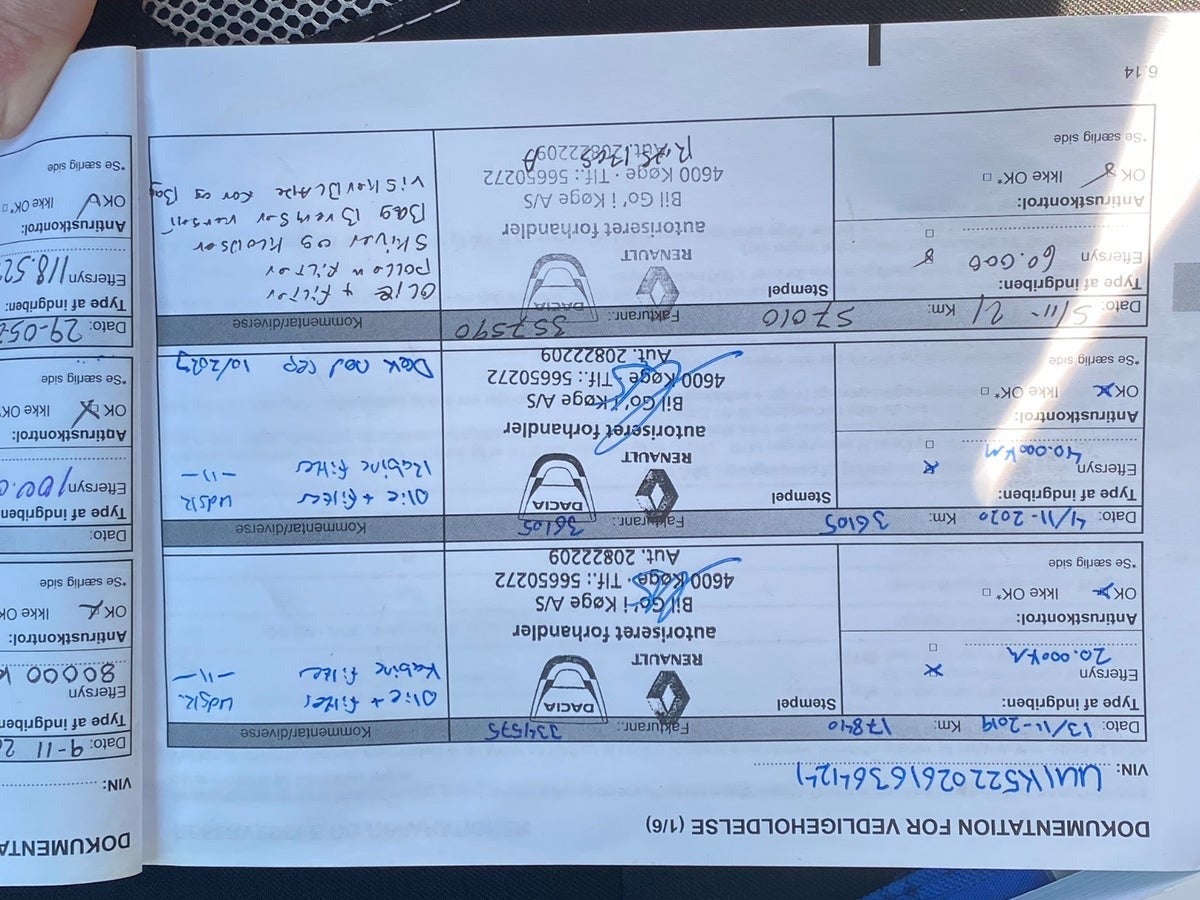 DOKUMENTATION FOR VEDLIGEHOLDELSE (1/6)
VIN: UU1K522026163641241
Dato: 13/11-2019 Km: 17840 Fakturanr.: 334575 Kommentar/diverse
Type af indgriben:
Eftersyn
20.000KM
Antirustkontrol:
OK Ikke OK*
*Se særlig side
Stempel
DACIA
RENAULT
autoriseret forhandler
Bil Go' i Køge A/S
4600 Køge · Tlf.: 56650272
Aut. 20822209
Olie + filter udsk.
Kabine filter -11-
Dato: 4/11-2020 Km: 36105 Fakturanr.: 36105 Kommentar/diverse
Type af indgriben:
Eftersyn
40.000KM
Antirustkontrol:
OK Ikke OK*
*Se særlig side
Stempel
DACIA
RENAULT
autoriseret forhandler
Bil Go' i Køge A/S
4600 Køge · Tlf.: 56650272
Aut. 20822209
Olie + filter udsk
Kabine filter -11-
Dæk nød rep 10/2023
Dato: 5/11-21 Km: 57010 Fakturanr.: 357590 Kommentar/diverse
Type af indgriben:
Eftersyn 60.000
Antirustkontrol:
OK Ikke OK*
*Se særlig side
Stempel
DACIA
RENAULT
autoriseret forhandler
Bil Go' i Køge A/S
4600 Køge · Tlf.: 56650272
Aut. 20822209
OLIE + Filter
pollen Filter
Skiver og Klodser
Bag Bremser renset
ViskerBLADE For og Bag
6.14
DOKUMENTA
VIN:
Dato: 9-11 2
Type af indgriben:
Eftersyn
80000 K
Antirustkontrol:
OK Ikke OK
*Se særlig side
Dato:
Type af indgriben:
Eftersyn 100.0
Antirustkontrol:
OK Ikke OK
*Se særlig side
Dato: 29-05-
Type af indgriben:
Eftersyn 118.52
Antirustkontrol:
OK Ikke OK*
*Se særlig side